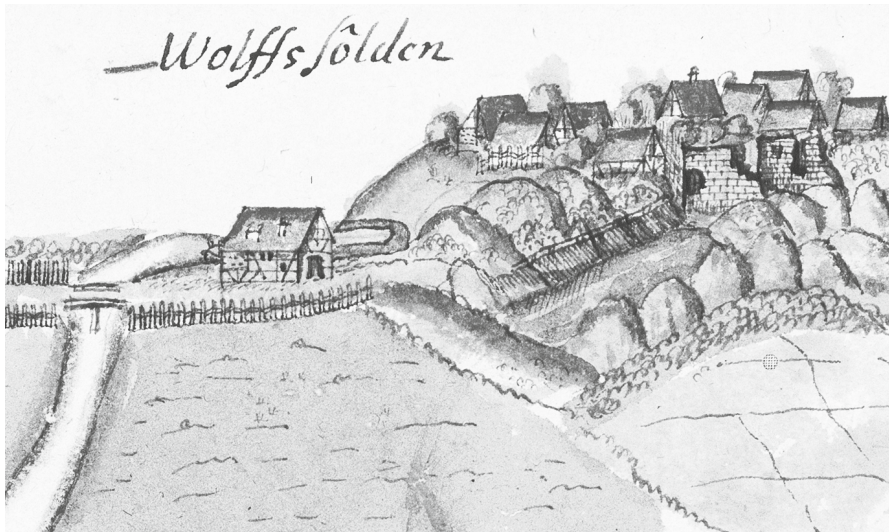 Wolffssôlden